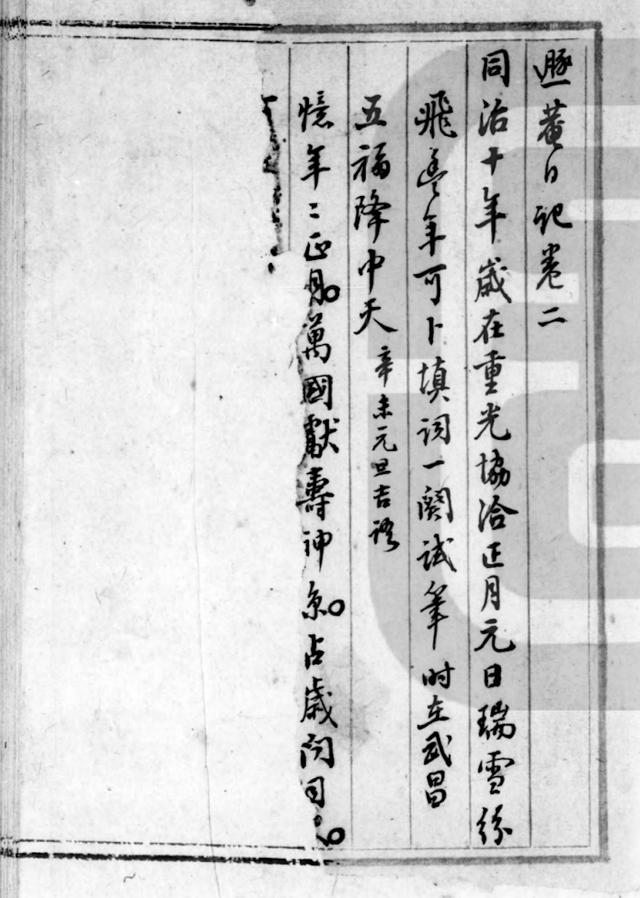 遯菴日記卷二
同治十年歲在重光協洽正月元日瑞雪紛
飛豐年可卜填詞一闋試筆時在武昌
五福降中天 辛未元旦吉語
憶年二正月萬國獻壽神京占歲問同